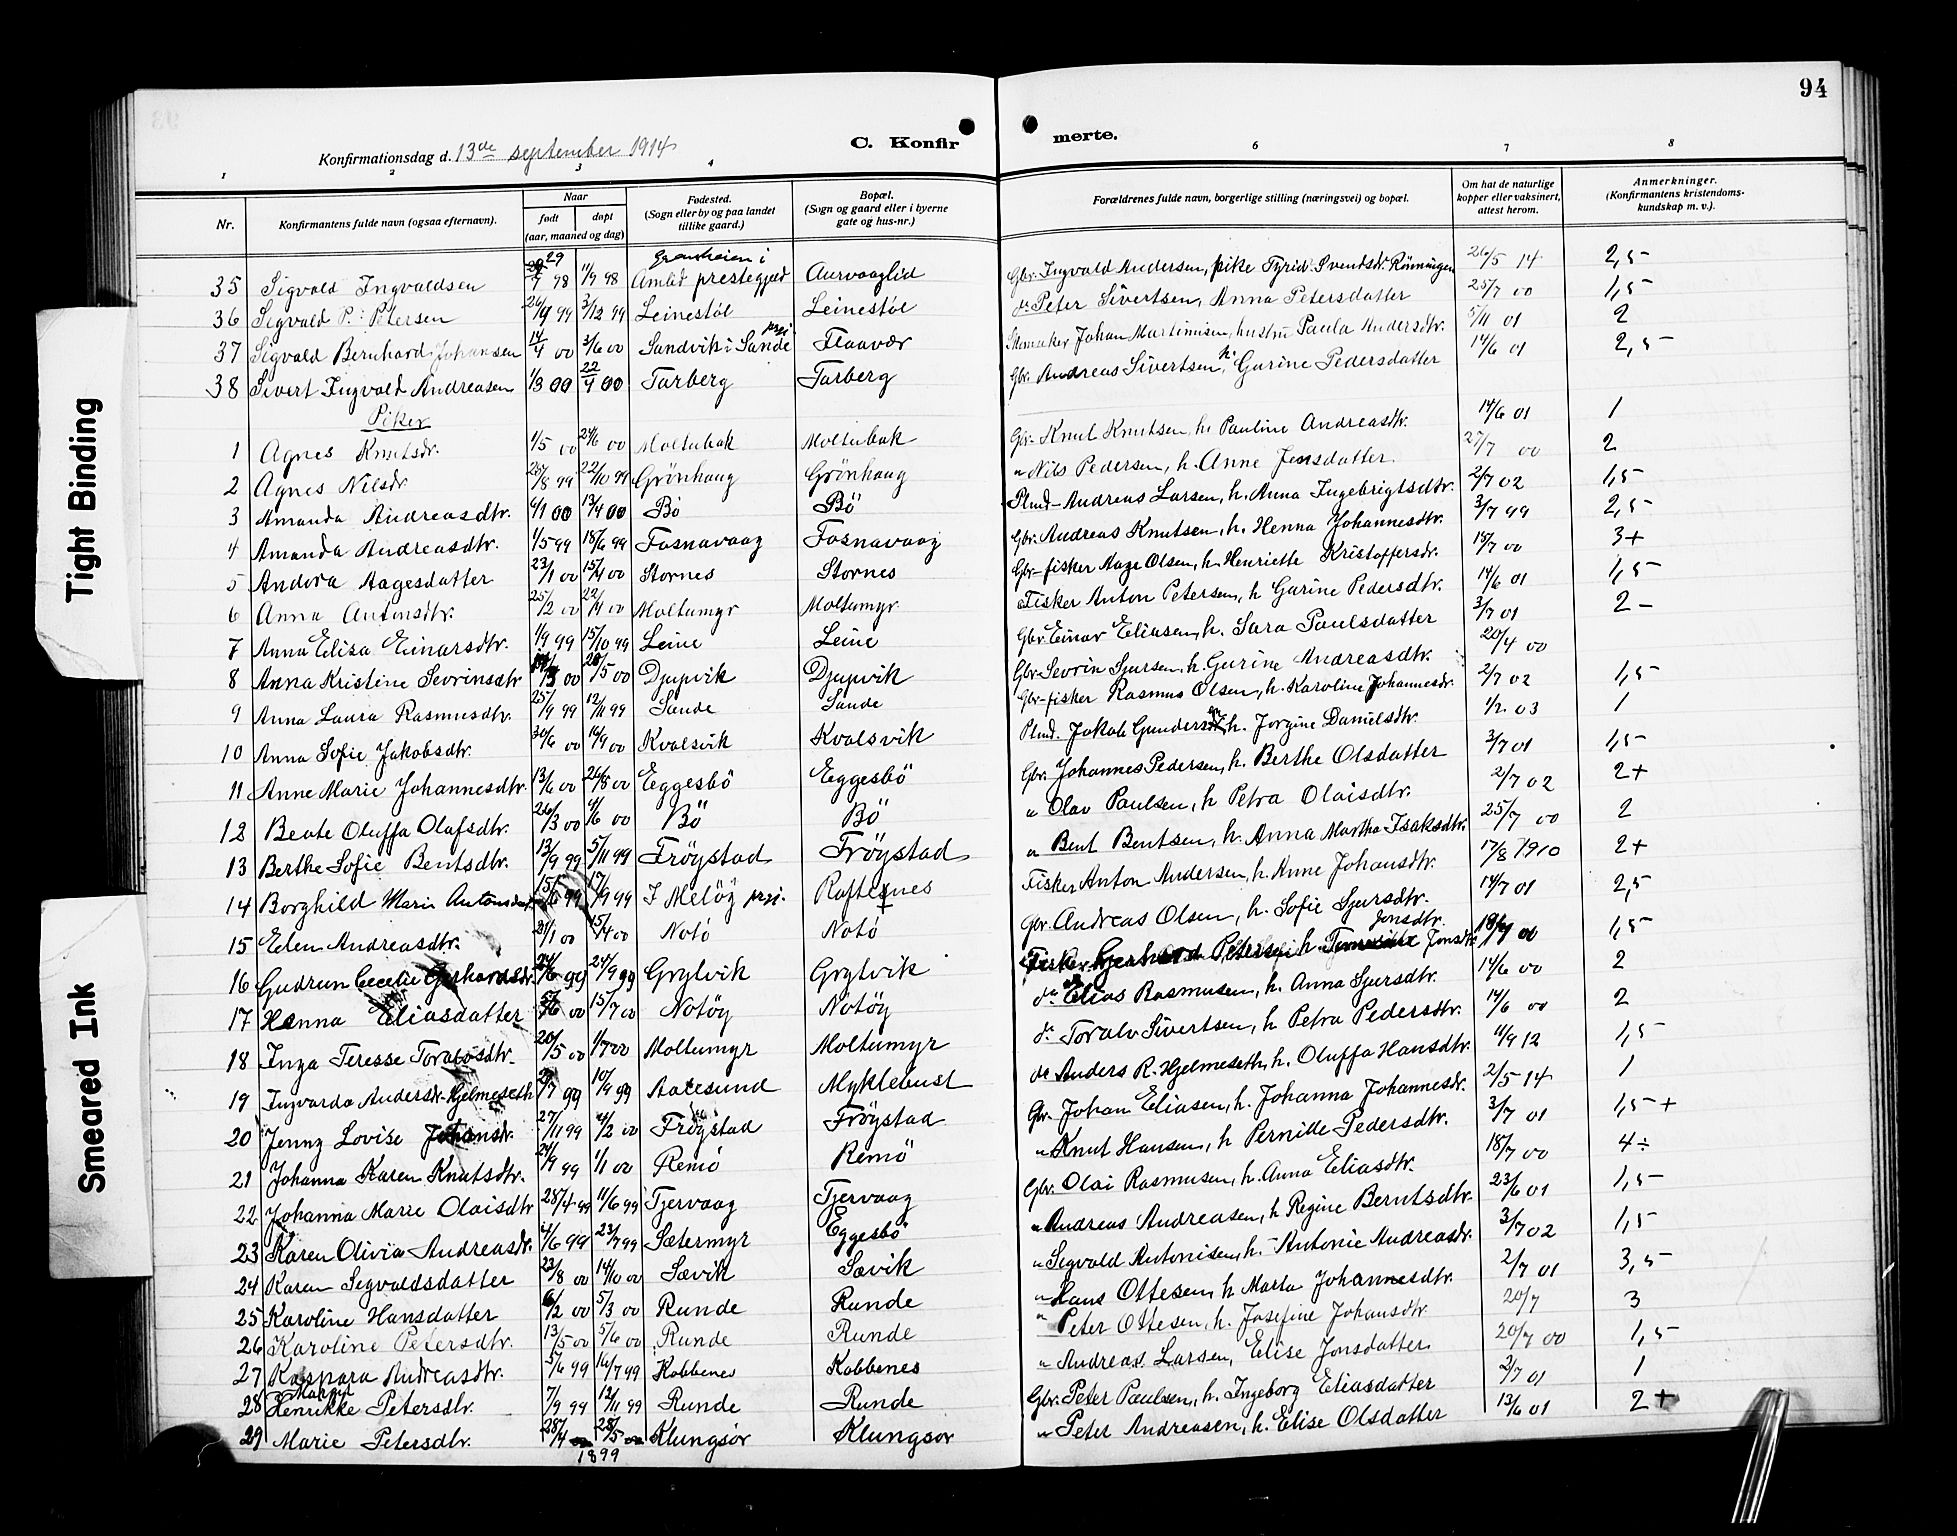 94
Konfirmationsdag d. 13de september 1914
C. Konfirmerte.
1 2 3 4 6 7 8
Nr. Konfirmantens fulde navn (ogsaa efternavn). Naar født døpt (aar, maaned og dag) Fødested. (Sogn eller by og paa landet tillike gaard.) Bopæl. (Sogn og gaard eller i byerne gate og hus-nr.) Forældrenes fulde navn, borgerlige stilling (næringsvei) og bopæl. Om hat de naturlige kopper eller vaksinert, attest herom. Anmerkninger. (Konfirmantens kristendomskundskap m. v.).
35 Sigvald Ingvaldsen 98 11/9 98 Amlid prestegjeld Aurvaaglid Gbr. Ingvald Andersen, pike Tyrid Svendsdr. Rönningen 26/5 14 2,5
36 Sigvald P. Petersen 26/9 99 3/12 99 Leinestøl Leinestøl do Peter Sivertsen, Anna Petersdatter 25/7 00 1,5
37 Sigvald Bernhard Johansen 14/4 00 3/6 00 Sandvik i Sande prgj. Flaavær Johan Martinusen, hustru Paula Andersdtr. 5/11 01 2
38 Sivert Ingvald Andreasen 1/3 00 22/4 00 Tarberg Tarberg Gbr. Andreas Sivertsen, h. Gurine Pedersdatter 14/6 01 2,5
Piker
1 Agnes Knutsdr. 1/5 00 24/6 00 Moltubak Moltubak Gbr. Knut Knutsen, h. Pauline Andreasdtr. 14/6 01 1
2 Agnes Nilsdr 28/8 99 22/10 99 Grönhaug Grönhaug " Nils Pedersen, h. Anne Jensdatter 27/7 00 2
3 Amanda Andreasdtr. 6/1 00 13/4 00 Bö Bö Plmd. Andreas Larsen, h. Anna Ingebrigtsdtr. 2/7 02 1,5
4 Amanda Andreasdtr. 1/5 99 18/6 99 Fosnavaag Fosnavaag Gbr. Andreas Knutsen, h. Henna Johannesdtr. 3/7 99 2,5
5 Andora Aagesdatter 23/1 00 15/4 00 Stornes Stornes Gbr-fisker Aage Olsen, h. Henriette Kristoffersdr. 18/7 00 3+
6 Anna Antonsdtr. 25/2 00 22/4 00 Moltumyr Moltumyr Fisker Anton Petersen, h Gurine Pedersdtr. 14/6 01 1,5
7 Anna Elisa Einarsdtr. 1/9 99 15/10 99 Leine Leine Gbr. Einar Eliasen, h. Sara Paulsdatter 3/7 01 2-
8 Anna Kristine Sevrinsdtr 00 20/5 00 Djupvik Djupvik Gbr. Sevrin Sjursen, h. Gurine Andreasdtr. 20/4 00
9 Anna Laura Rasmusdtr. 25/9 99 12/11 99 Sande Sande Gbr-fisker Rasmus Olsen, h. Karoline Johannesdr. 2/7 02 1,5
10 Anna Sofie Jakobsdtr. 30/6 00 16/9 00 Kvalsvik Kvalsvik Plmd. Jakob Gundersen, h. Jorgine Danielsdtr. 1/2 03 1
11 Anne Marie Johannesdtr. 13/6 00 26/8 00 Eggesbö Eggesbö Gbr. Johannes Pedersen, h. Berthe Olsdatter 3/7 01 1,5
12 Beate Oluffa Olafsdtr. 26/3 00 4/6 00 Bö Bö " Olav Paulsen, h Petra Olaisdtr. 2/7 02 2+
13 Berthe Sofie Bentsdtr. 13/9 99 5/11 99 Fröystad Fröystad " Bent Bentsen, h. Anna Martha Isaksdtr. 25/7 00 2
14 Borghild Marie Antonsdtr 15/6 99 17/9 99 I Melöy prgj. Raftesnes Fisker Anton Andersen, h. Anne Johansdtr. 17/8 1910 2+
15 Elen Andreasdtr. 21/1 00 15/4 00 Notö Notö Gbr. Andreas Olsen, h. Sofie Sjursdtr. 14/7 01 2,5
16 Gudrun Cecelie Gerhardsdr. 24/6 99 24/9 99 Grytvik Grytvik Fisker Gerhard Petersen h. Jonsdtr. 18/7 00 1,5
17 Hanna Eliasdatter 5/6 00 15/7 00 Notöy Notöy do Elias Rasmusen, h. Anna Sjursdtr. 14/6 00 2
18 Inga Teresse Toralvsdtr. 20/5 00 1/7 00 Moltumyr Moltumyr do Toralv Sivertsen, h Petra Pedersdtr. 14/6 00 2
19 Ingvarda Andersdr. Hjelmeseth 7 99 10/9 99 Aalesund Myklebust do Anders R. Hjelmeseth, h. Oluffa Hansdtr. 11/9 12 1,5
20 Jenny Lovise Johansdr. 27/11 99 4/2 00 Fröystad Fröystad Gbr. Johan Eliasen, h. Johanna Johannesdr. 2/5 14 1
21 Johanna Karen Knutsdtr. 24/9 99 1/1 00 Remö Remö " Knut Hansen, h Pernille Pedersdtr. 3/7 01 1,5+
22 Johanna Marie Olaisdtr 28/4 99 11/6 99 Tjervaag Tjervaag Gbr. Olai Rasmusen, h. Anna Eliasdtr. 18/7 00 4÷
23 Karen Olivia Andreasdr. 4/6 99 23/7 99 Sætermyr Eggesbö " Andreas Andreasen, h Regine Berntsdtr. 23/6 01 1,5
24 Karen Sigvaldsdatter 23/8 00 14/10 00 Sævik Sævik " Sigvald Antonisen, h. Antonie Andreasdr. 3/7 02 1,5
25 Karoline Hansdatter 6/2 00 5/3 00 Runde Runde " Hans Ottesen, h Marta Johannesdtr. 2/7 01 3,5
26 Karoline Petersdtr. 13/5 00 5/6 00 Runde Runde " Peter Ottesen, h. Josefine Johansdtr 20/7 3
27 Kaspara Andreasdtr. 5/6 99 16/7 99 Kobbenes Kobbenes " Andreas Larsen, Elise Jonsdatter 20/7 00 1,5
28 Henrikke Petersdtr. 7/9 99 12/11 99 Runde Runde Gbr. Peter Paulsen, h. Ingeborg Eliasdatter 2/7 01 1
29 Marie Petersdtr. 28/4 28/5 Klungsör Klungsör " Peter Andreasen, h. Elise Olsdatter 13/6 01 2+
1899
Tight Binding
Smeared Ink